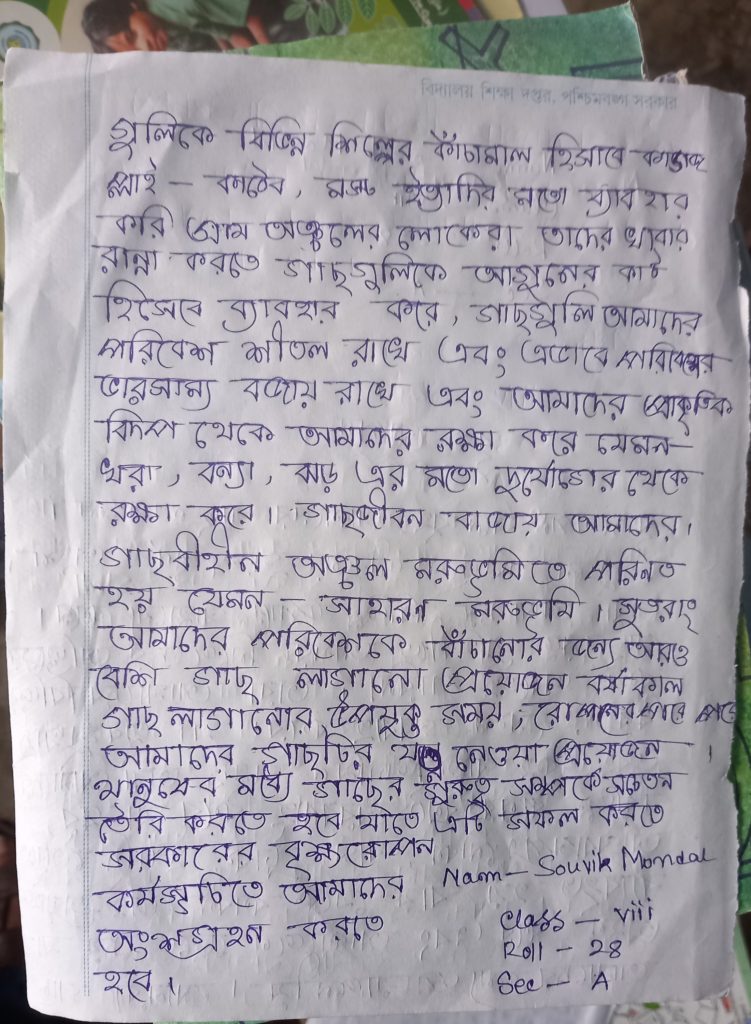 বিদ্যালয় শিক্ষা দপ্তর, পশ্চিমবঙ্গ সরকার
গুলিকে বিভিন্ন শিল্পের কাঁচামাল হিসাবে
প্লাই - কাঠের, ইত্যাদির মতো ব্যাবহার
করি গ্রাম অঞ্চলের লোকেরা তাদের খাবার
রান্না করতে গাছগুলিকে আগুনের কাঠ
হিসেবে ব্যাবহার করে, গাছগুলি আমাদের
পরিবেশ শীতল রাখে এবং এভাবে পরিবেশের
ভারসাম্য বজায় রাখে এবং আমাদের প্রাকৃতিক
বিপদ থেকে আমাদের রক্ষা করে যেমন-
খরা, বন্যা, ঝড় এর মতো দুর্যোগের থেকে
রক্ষা করে। গাছজীবন বাচায় আমাদের।
গাছবীহীন অঞ্চল মরুভূমিতে পরিনত
হয় যেমন - সাহারা মরুভূমি। সুতরাং
আমাদের পরিবেশকে বাঁচানোর জন্যে আরও
বেশি গাছ লাগানো প্রয়োজন বর্ষাকাল
গাছ লাগানোর উপযুক্ত সময়, রোপনের পরে
আমাদের গাছটির যত্ন নেওয়া প্রয়োজন।
মানুষের মধ্যে গাছের গুরুত্ব সম্পর্কে সচেতন
তৈরি করতে হবে যাতে এটি সফল করতে
সরকারের বৃক্ষ্যরোপন
কর্মসূচিতে আমাদের
অংশগ্রহন করতে
হবে।
Nam - Souvik Mondal
Class - viii
Roll - 28
Sec - A